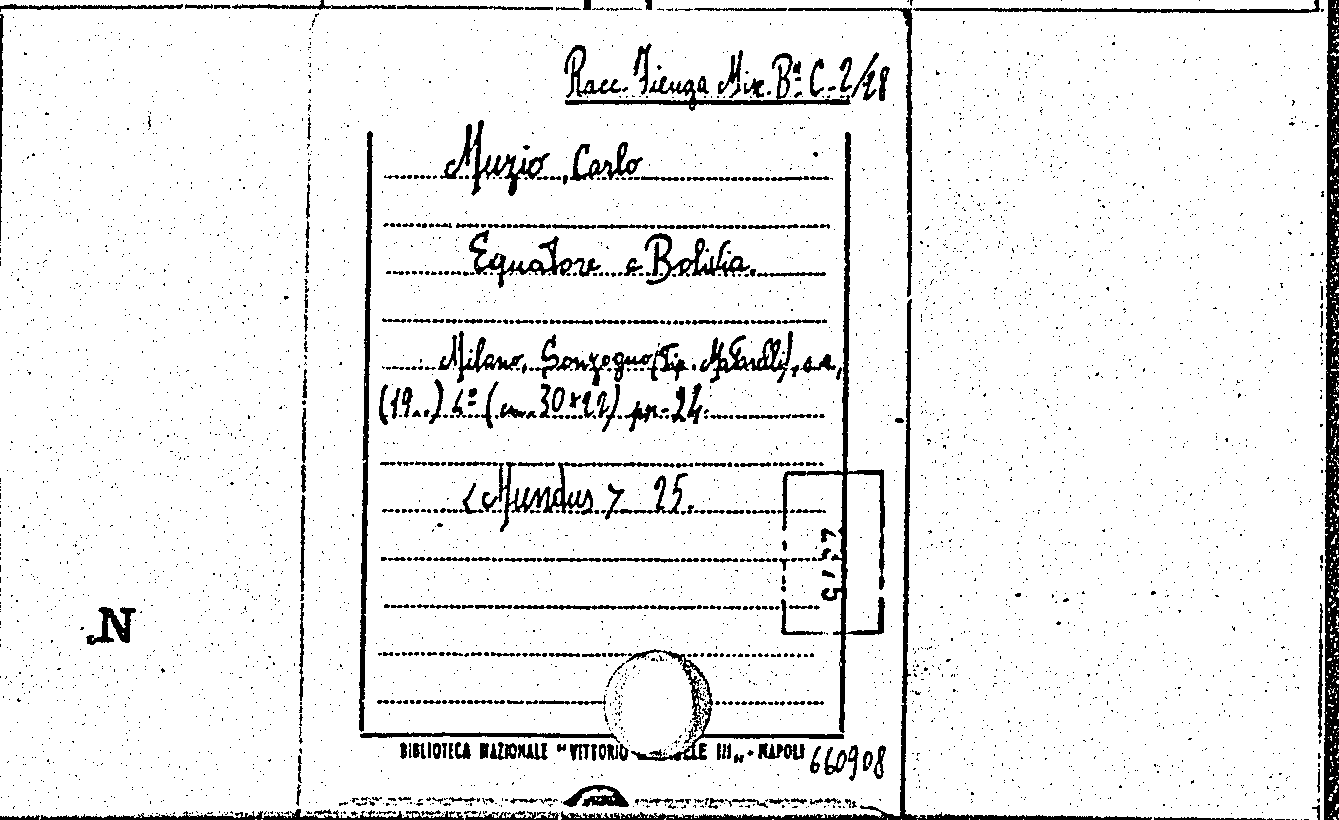 Racc. Fienga Mix. Bª C-2/28
Muzio, Carlo
Equatore e Bolivia.
Milano, Sonzogno (Tip. Matarelli), s.a.,
(19..) 4º (cm. 30*22) pp. 24.
<Mundus> 25.
N
BIBLIOTECA NAZIONALE "VITTORIO III„ - NAPOLI
660908